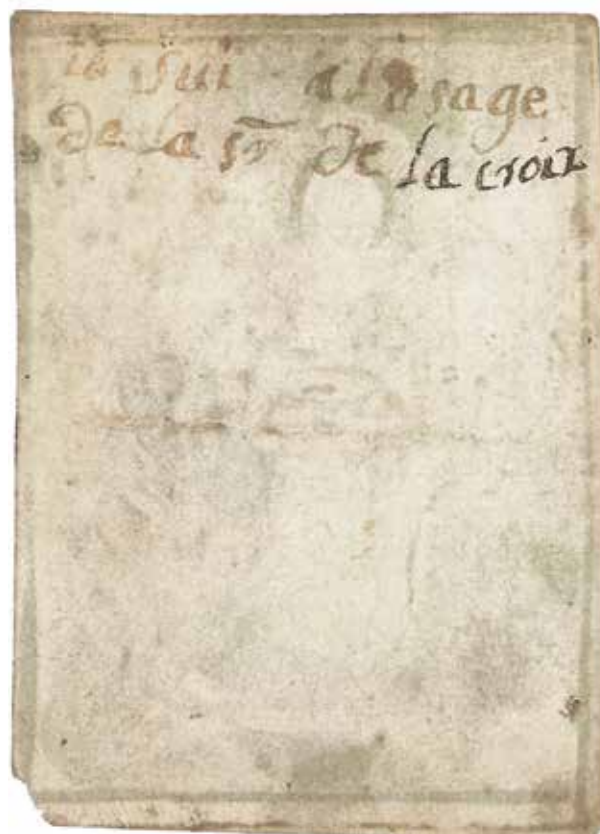 ie sui a lusage
de la sr de la croix